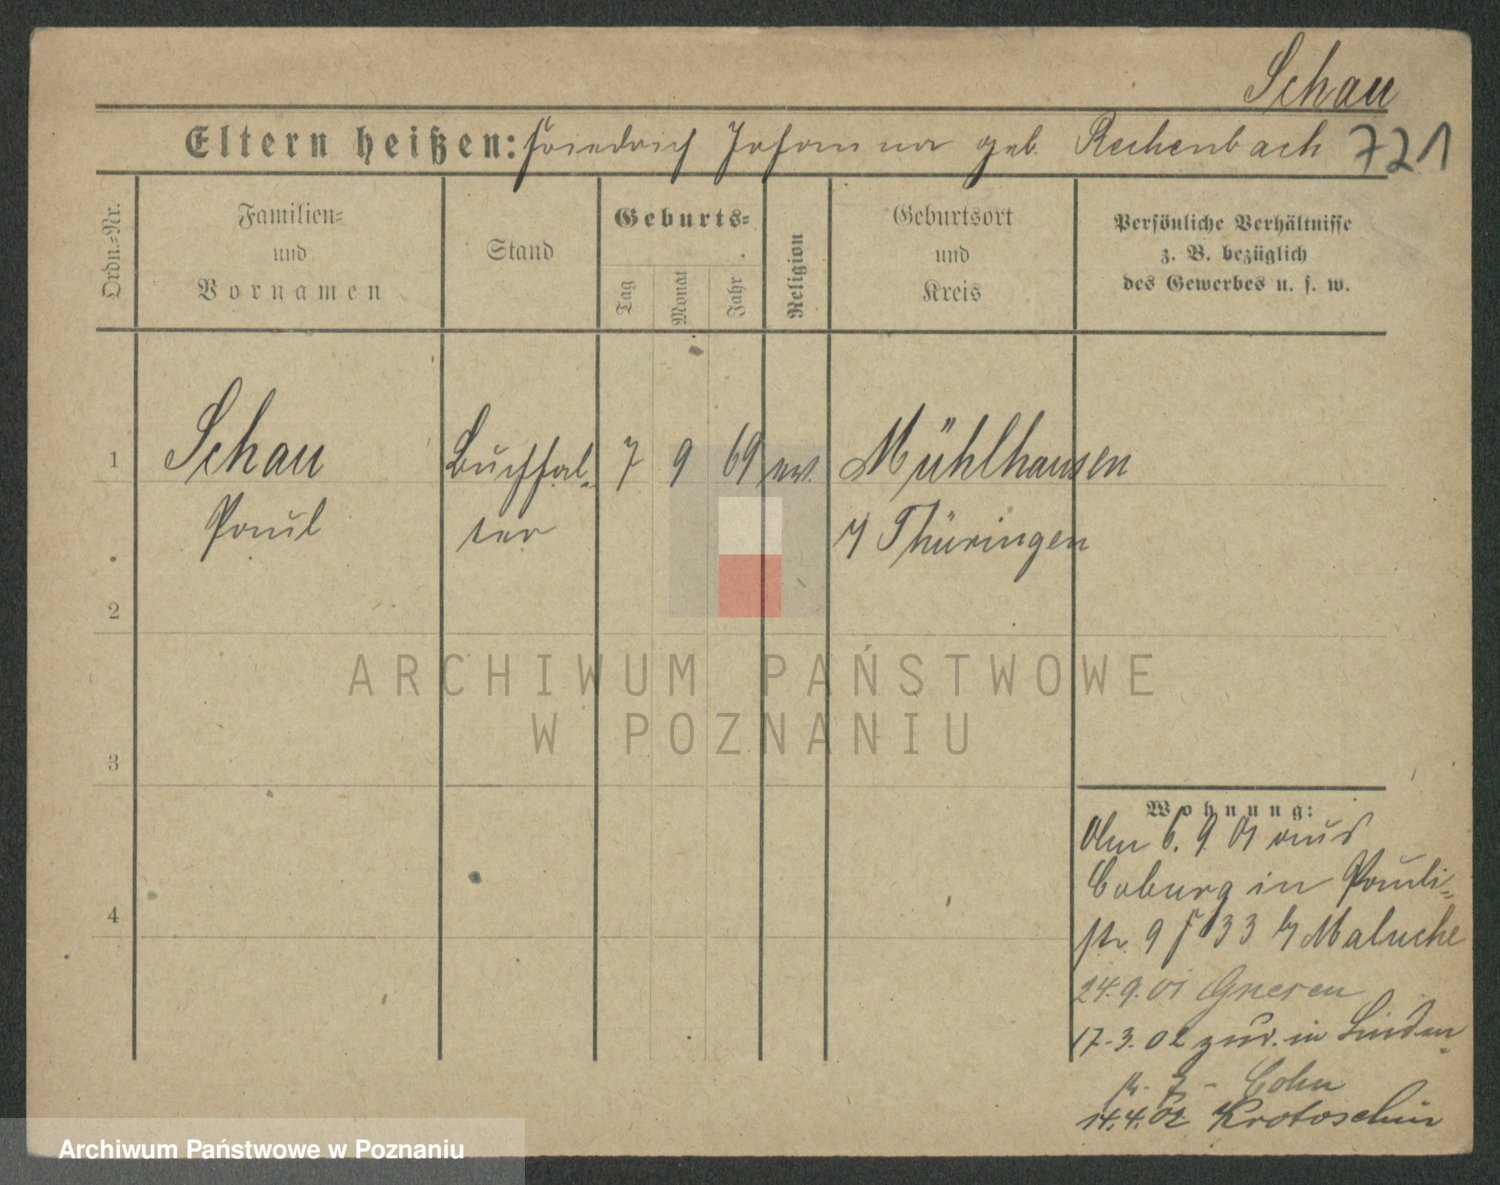 Schau
Eltern heißen: Friedrich Johanna geb. Rechenbach 721
Ordn.-Nr.
Familien-
und
Vornamen
Stand
Geburts-
Tag
Monat
Jahr
Religion
Geburtsort
und
Kreis
Persönliche Verhältnisse
z. B. bezüglich
des Gewerbes u. s. w.
1 Schau Buchhal- 7 9 69 ev. Mühlhausen
Paul ter Thüringen
2
3
4
Wohnung:
Am 6. 9. 01 aus
Coburg in Pauli-
str. 9 33 Maluche
24.9.01 Gnesen
17.3.02 zur. in Linden
str. 7 Cohn
14.4.02 Krotoschin
ARCHIWUM PAŃSTWOWE
W POZNANIU
Archiwum Państwowe w Poznaniu